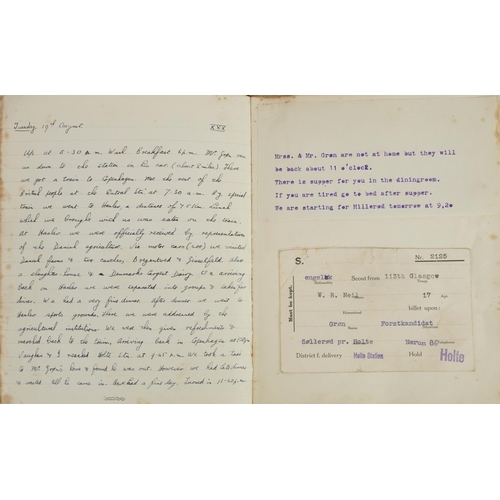 Tuesday, 19th August.
XXX
Up at 5-30 a.m. Wash Breakfast 6 p.m. Mr. Grøn ran
us down to the station in his car. (about 2 miles). There
we got a train to Copenhagen. Met the rest of the
British people at the Central Stn at 7-30 a.m. By special
train we went to Haslev a distance of 75 Km. Lunch
which we brought with us was eaten on the train.
At Haslev we were officially received by representatives
of the Danish agriculture. Via motor cars (200) we visited
Danish farms & two castles, Bregentved & Gisselfeld. Also
a slaughter house & Denmarks largest Dairy. On arriving
back in Haslev we were separated into groups & taken for
dinner. We had a very fine dinner. After dinner we went to
Haslev sports grounds. Here we were addressed by the
agricultural institution. We were then given refreshments &
marched back to the train, arriving back in Copenhagen at
Vaughan & I reached Holte Stn at 9.45 p.m. We took a taxi
to Mr. Grøn's house & found he was out. However we had late dinner
& waited till he came in. Have had a fine day. Turned in 11-45 p.m.
Mrss. & Mr. Grøn are not at home but they will
be back about 11 o'clock.
There is supper for you in the diningroom.
If you are tired go to bed after supper.
We are starting for Hillerød tomorrow at 9,20
S.
Nr. 2125
engelsk Scout from 113th Glasgow
Nationality Troop
W. R. Neil 17 Age.
Name
billet upon:
Must be kept.
Grøn Forstkandidat
Søllerød pr. Holte Nærum 80
District f. delivery Holte Station Hold Holte